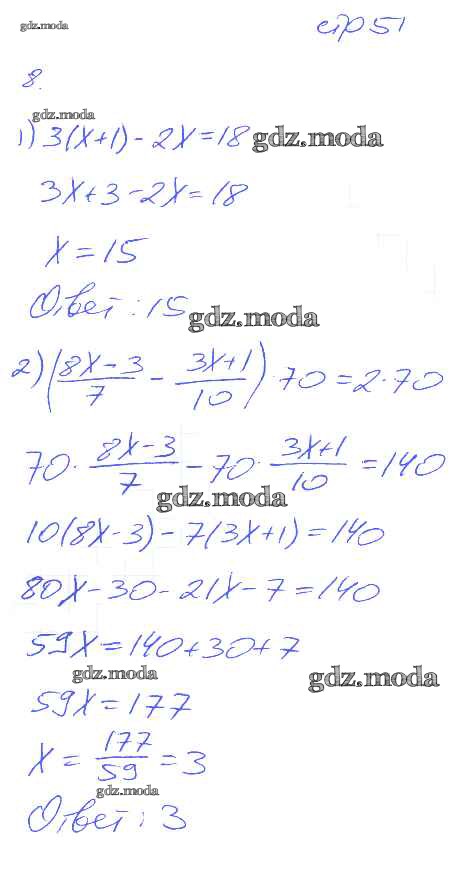 gdz.moda
стр 51
8.
gdz.moda
1) 3(x+1) - 2x = 18 gdz.moda
3x + 3 - 2x = 18
x = 15
Ответ: 15 gdz.moda
2) ((8x-3)/7 - (3x+1)/10) · 70 = 2·70
70 · (8x-3)/7 - 70 · (3x+1)/10 = 140
gdz.moda
10(8x-3) - 7(3x+1) = 140
80x - 30 - 21x - 7 = 140
59x = 140 + 30 + 7
gdz.moda gdz.moda
59x = 177
x = 177/59 = 3
gdz.moda
Ответ: 3